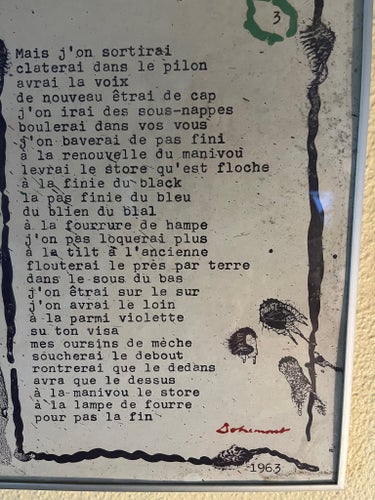 3
Mais j'on sortirai
claterai dans le pilon
avrai la voix
de nouveau êtrai de cap
j'on irai des sous-nappes
boulerai dans vos vous
j'on baverai de pas fini
à la renouvelle du manivou
levrai le store qu'est floche
à la finie du black
la pas finie du bleu
du blien du blal
à la fourrure de hampe
j'on pas loquerai plus
à la tilt à l'ancienne
flouterai le près par terre
dans le sous du bas
j'on êtrai sur le sur
j'on avrai le loin
à la parmi violette
su ton visa
mes oursins de mèche
soucherai le debout
rontrerai que le dedans
avra que le dessus
à la manivou le store
à la lampe de fourre
pour pas la fin
1963